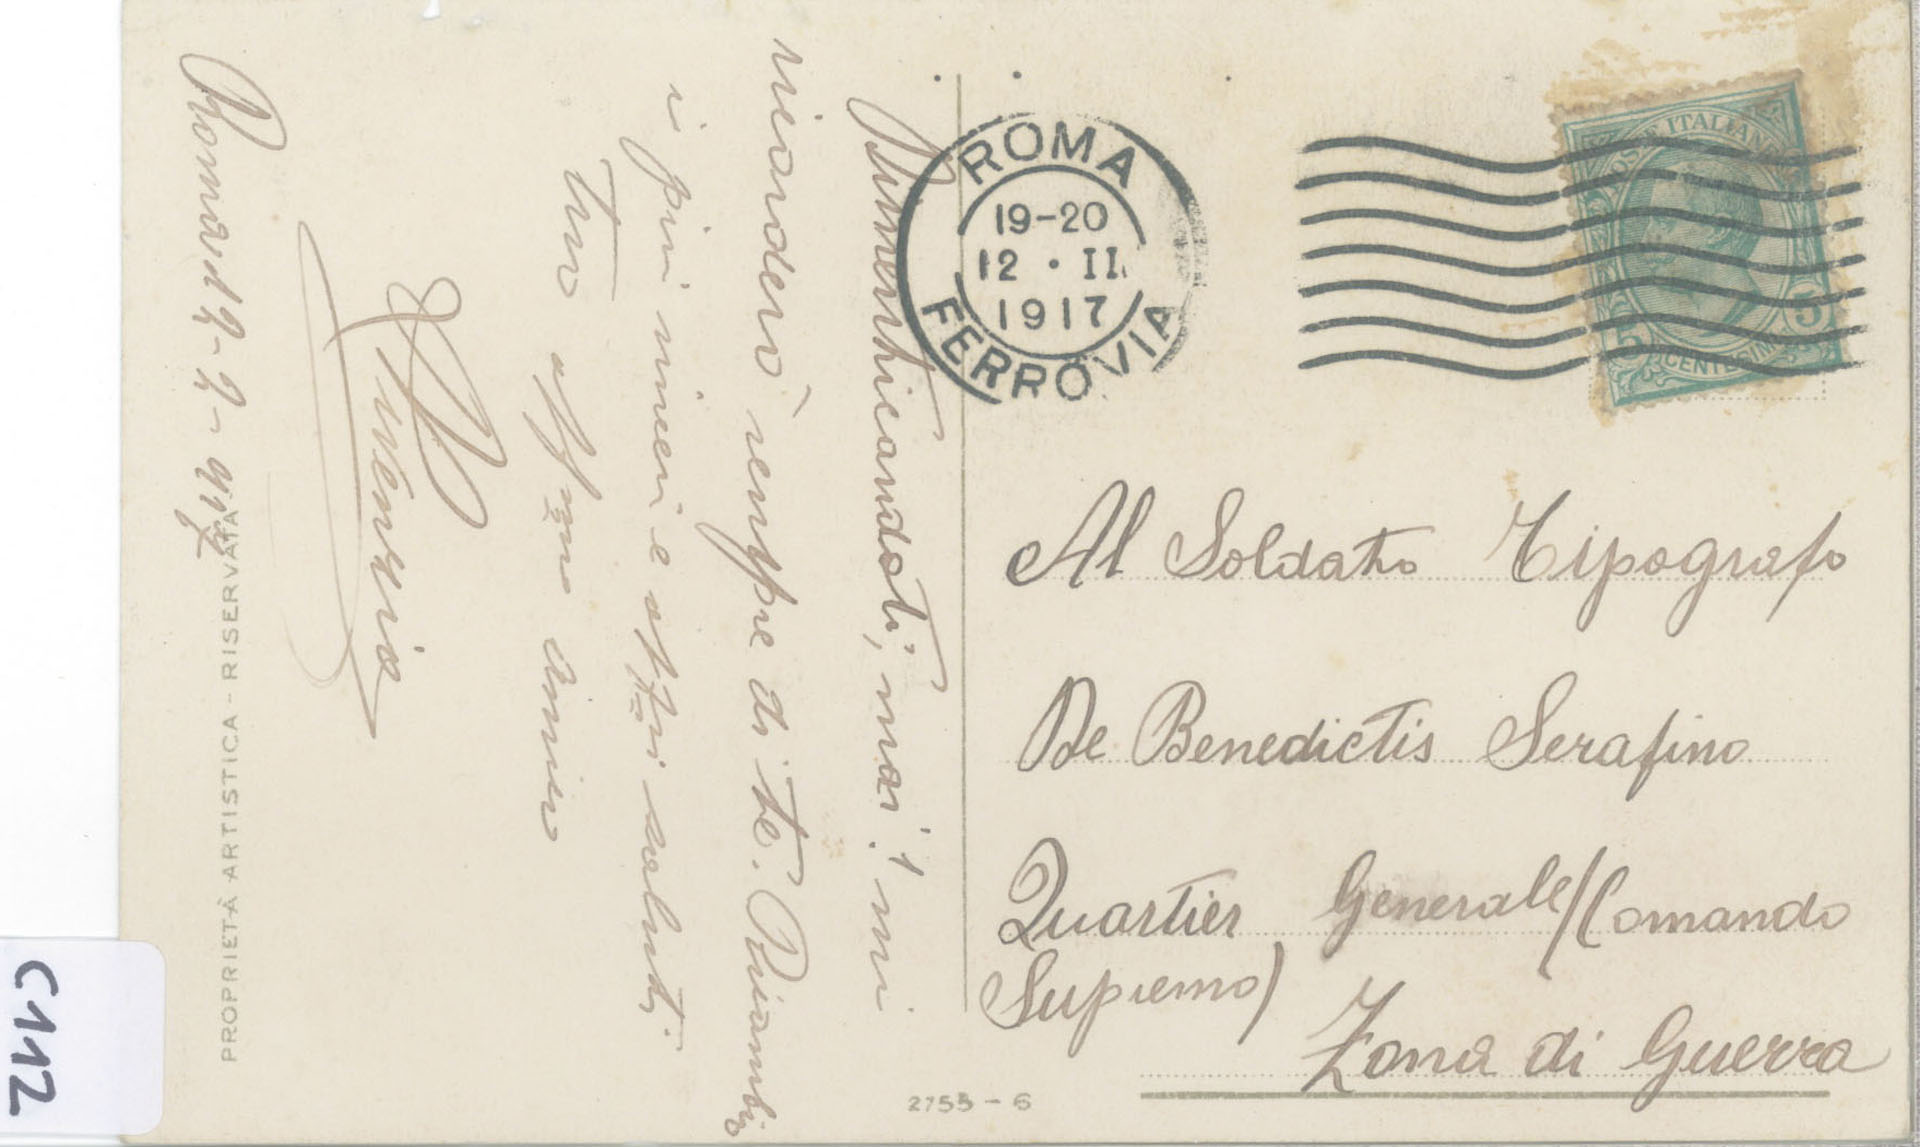 Roma 12-2-917
Dimenticandoti, mai! mi
ricorderò sempre di te. Ricambio
i più sinceri e affzsi saluti
Tuo affmo amico
ROMA
19-20
12 · II
1917
FERROVIA
POSTE ITALIANE
5 5
CENTESIMI
Al Soldato Tipografo
De Benedictis Serafino
Quartier Generale (Comando
Supremo)
Zona di Guerra
PROPRIETÀ ARTISTICA - RISERVATA
2755 - 6
C112